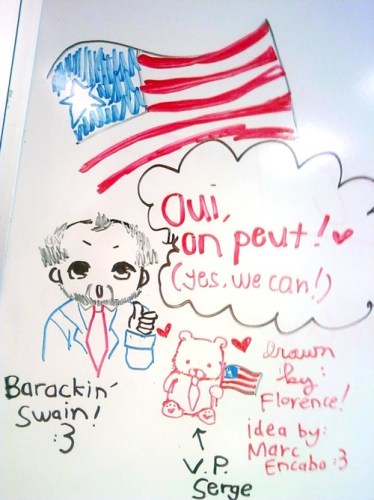 Oui,
on peut! ♥
(yes, we can!)
Barackin'
Swain!
:3
drawn
by:
Florence!
idea by:
Marc
Encabo :3
V.P.
Serge